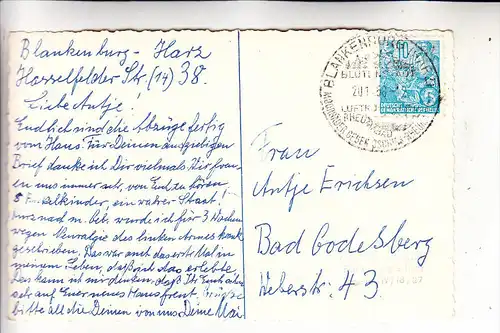 Blankenburg - Harz
Hasselfelder Str. (14) 38.
Liebe Antje.
Endlich sind die Abzüge fertig
vom Haus. Für Deinen ausgiebigen
Brief danke ich Dir vielmals. Wir freu-
en uns immer sehr, von Euch zu hören.
5 Enkelkinder, ein wahrer Staat!
Kurz nach m. Geb. wurde ich für 3 Wochen
wegen Neuralgie des linken Armes krank
geschrieben. Das war das erste Mal in
meinem Leben, daß ich das erlebte.
kann ich mir denken, daß Ihr Euch
sehr auf Euer neues Haus freut. Grüße
bitte all die Deinen von uns. Deine Mai
BLANKENBURG (HARZ)
LUFTKURORT
DEUTSCHE
DEMOKRATISCHE REPUBLIK
10
Frau
Antje Erichsen
Bad Godesberg
Weberstr. 43